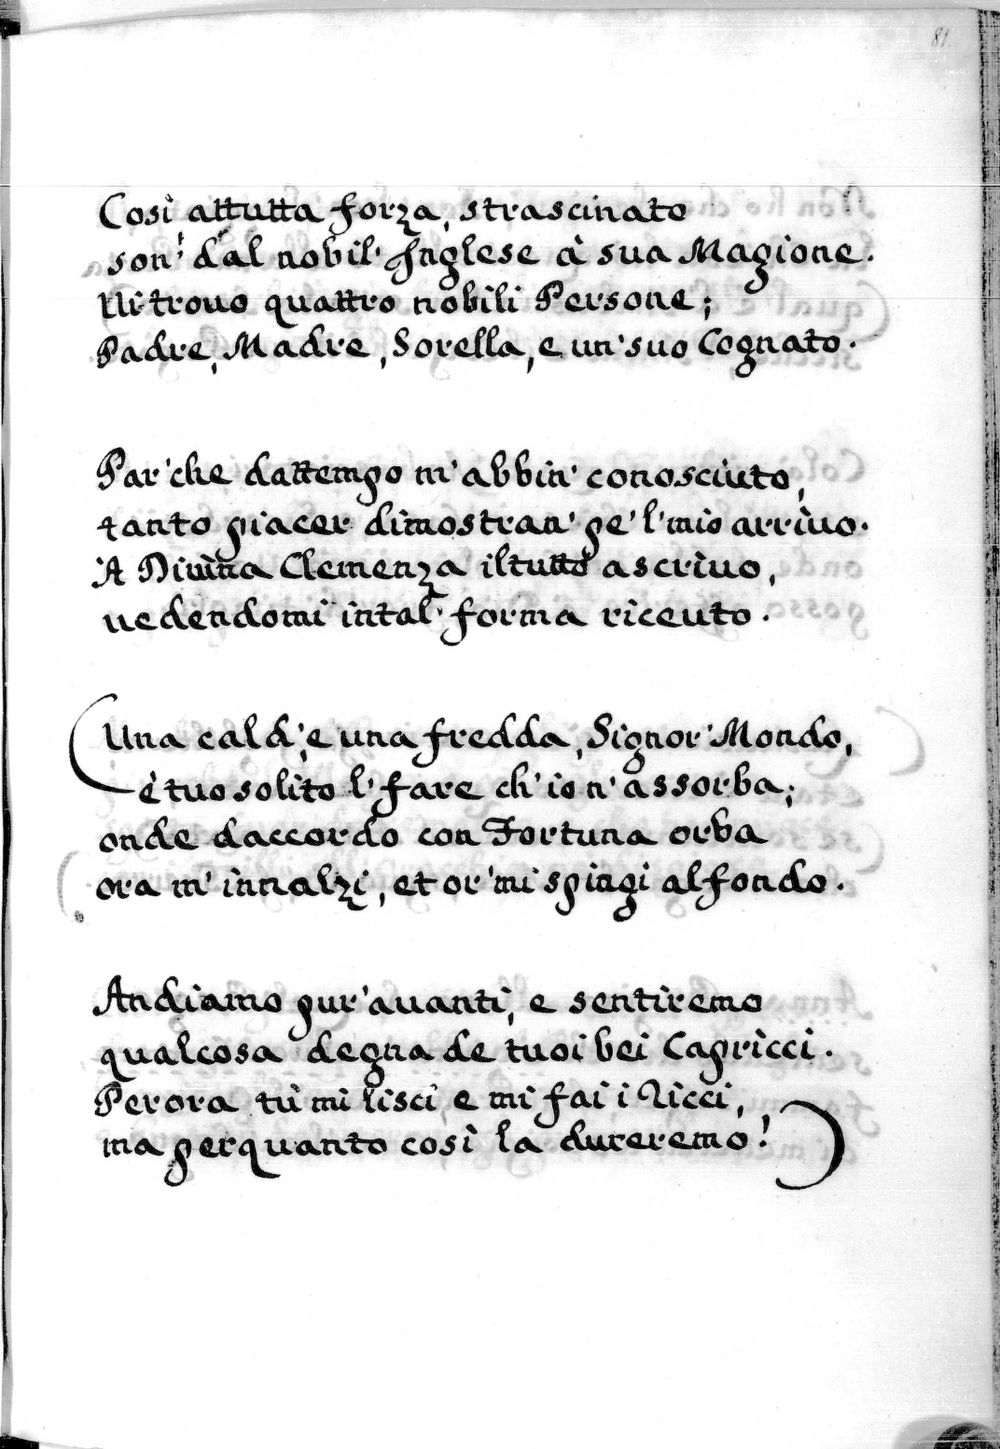 81.
Così, attutta forza, strascinato
son' dal nobil' Inglese à sua Magione.
Ui trouo quattro nobili Persone;
Padre, Madre, Sorella, e un' suo Cognato.
Par' che dattempo m' abbin' conosciuto,
tanto piacer dimostran' pe' l' mio arriuo.
A Diuina Clemenza il tutto ascriuo,
uedendomi in tal' forma riceuto.
(Una cald', e una fredda, Signor' Mondo,
è tuo solito l' fare ch' io n' assorba;
onde daccordo con Fortuna orba
ora m' innalzi, et or' mi spingi al fondo.
Andiamo pur' auanti, e sentiremo
qualcosa degna de tuoi bei Capricci.
Per ora tù mi lisci, e mi fai i Ricci,
ma per quanto così la dureremo!)